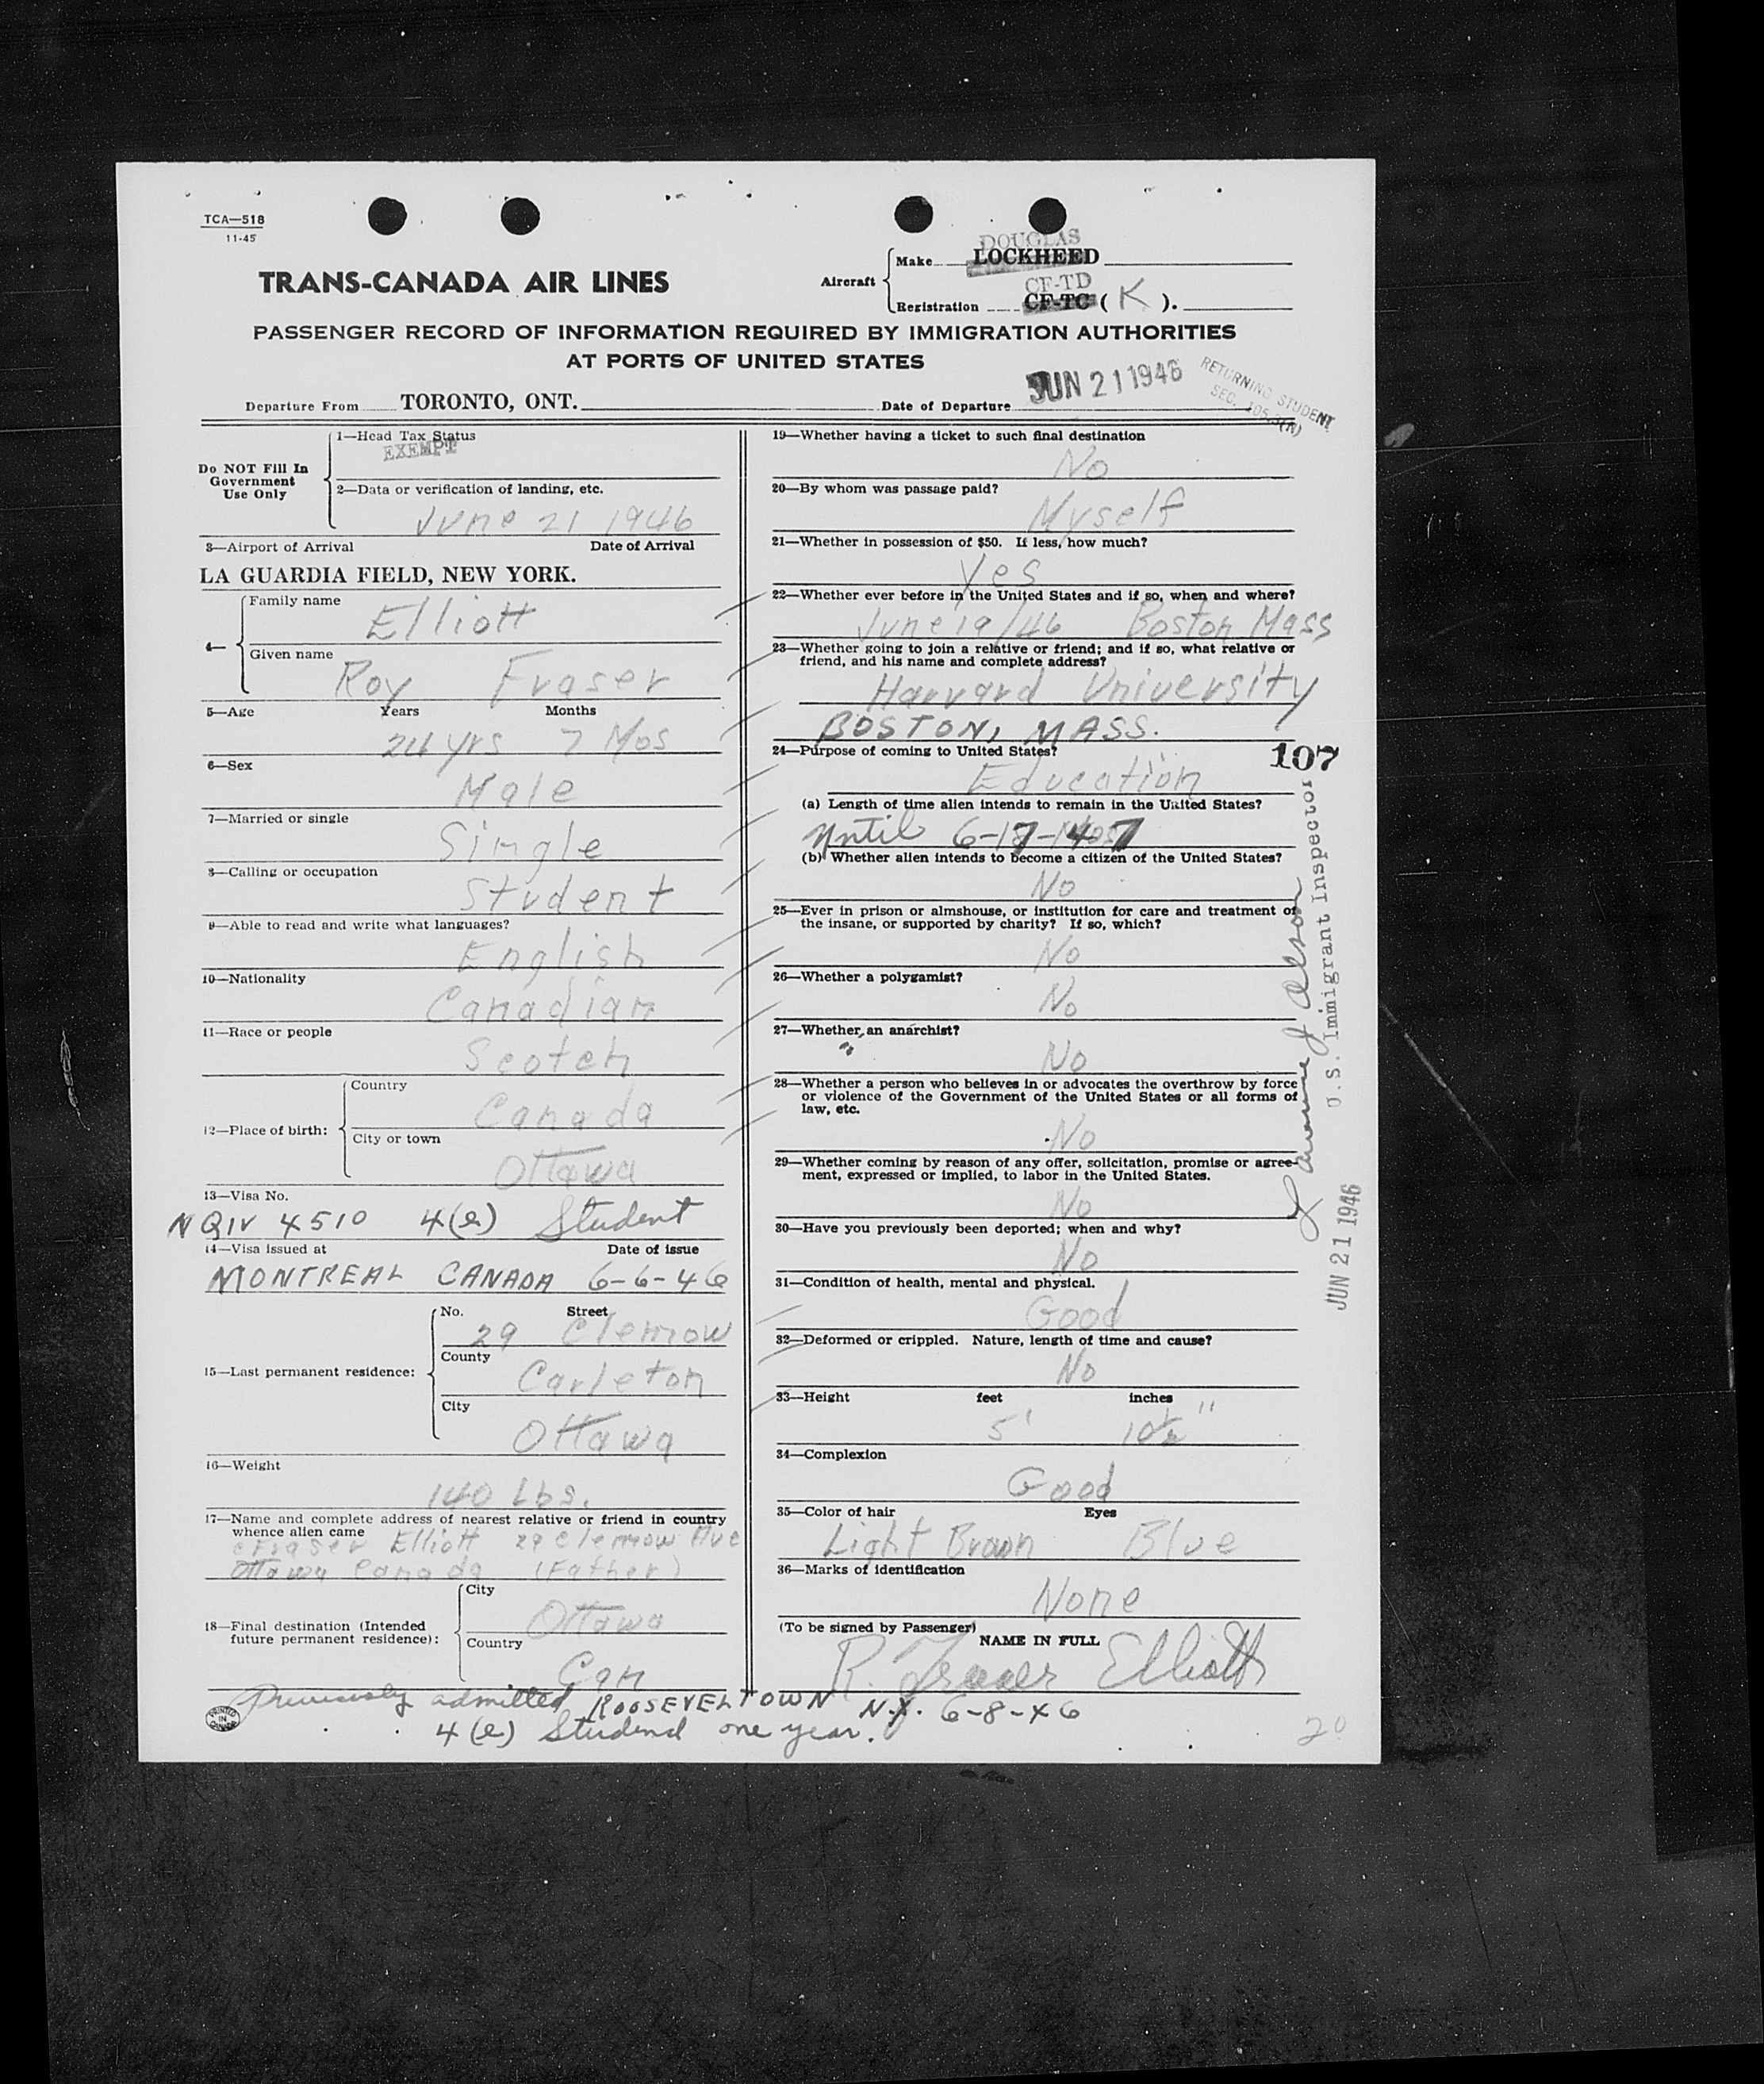 TCA—518
11-45
TRANS-CANADA AIR LINES
Aircraft
Make
DOUGLAS
LOCKHEED
Registration
CF-TD
CF-TC ( K ).
PASSENGER RECORD OF INFORMATION REQUIRED BY IMMIGRATION AUTHORITIES
AT PORTS OF UNITED STATES
Departure From TORONTO, ONT. Date of Departure JUN 21 1946
RETURNING STUDENT
SEC. 105.3(N)
Do NOT Fill In
Government
Use Only
1—Head Tax Status
EXEMPT
2—Data or verification of landing, etc.
June 21 1946
3—Airport of Arrival Date of Arrival
LA GUARDIA FIELD, NEW YORK.
4—
Family name
Elliott
Given name
Roy Fraser
5—Age Years Months
24 yrs 7 Mos
6—Sex
Male
7—Married or single
Single
8—Calling or occupation
Student
9—Able to read and write what languages?
English
10—Nationality
Canadian
11—Race or people
Scotch
12—Place of birth:
Country
Canada
City or town
Ottawa
13—Visa No.
NQIV 4510 4(e) Student
14—Visa issued at Date of issue
MONTREAL CANADA 6-6-46
15—Last permanent residence:
No. Street
29 Clemow
County
Carleton
City
Ottawa
16—Weight
140 Lbs.
17—Name and complete address of nearest relative or friend in country
whence alien came
Fraser Elliott 29 Clemow Ave
Ottawa Canada (Father)
18—Final destination (Intended
future permanent residence):
City
Ottawa
Country
Can
19—Whether having a ticket to such final destination
No
20—By whom was passage paid?
Myself
21—Whether in possession of $50. If less, how much?
Yes
22—Whether ever before in the United States and if so, when and where?
June 19/46 Boston Mass
23—Whether going to join a relative or friend; and if so, what relative or
friend, and his name and complete address?
Harvard University
BOSTON, MASS.
24—Purpose of coming to United States?
Education
107
(a) Length of time alien intends to remain in the United States?
Until 6-17-47
(b) Whether alien intends to become a citizen of the United States?
No
25—Ever in prison or almshouse, or institution for care and treatment of
the insane, or supported by charity? If so, which?
No
26—Whether a polygamist?
No
27—Whether an anarchist?
No
28—Whether a person who believes in or advocates the overthrow by force
or violence of the Government of the United States or all forms of
law, etc.
No
29—Whether coming by reason of any offer, solicitation, promise or agree-
ment, expressed or implied, to labor in the United States.
No
30—Have you previously been deported; when and why?
No
31—Condition of health, mental and physical.
Good
32—Deformed or crippled. Nature, length of time and cause?
No
33—Height feet inches
5' 10½"
34—Complexion
Good
35—Color of hair Eyes
Light Brown Blue
36—Marks of identification
None
(To be signed by Passenger)
NAME IN FULL
R. Fraser Elliott
U. S. Immigrant Inspector
JUN 21 1946
Previously admitted ROOSEVELTOWN N.Y. 6-8-46
4(e) Student one year.
PRINTED
IN
CANADA
20